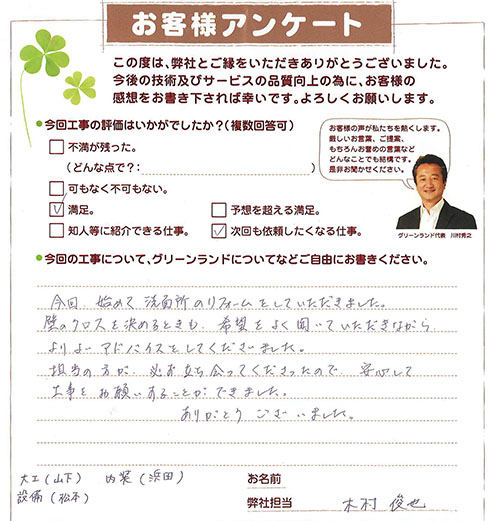 お客様アンケート
この度は、弊社とご縁をいただきありがとうございました。
今後の技術及びサービスの品質向上の為に、お客様の
感想をお書き下されば幸いです。よろしくお願いします。
●今回工事の評価はいかがでしたか?(複数回答可)
不満が残った。
(どんな点で?: )
可もなく不可もない。
満足。
予想を超える満足。
知人等に紹介できる仕事。
次回も依頼したくなる仕事。
お客様の声が私たちを熱くします。
厳しいお言葉、ご提案、
もちろんお誉めの言葉など
どんなことでも結構です。
是非お聞かせください。
グリーンランド代表 川村秀之
●今回の工事について、グリーンランドについてなどご自由にお書きください。
今回、始めて洗面所のリフォームをしていただきました。
壁のクロスを決めるときも、希望をよく聞いていただきながら、
よりよいアドバイスをしてくださいました。
担当の方が、必ず立ち会ってくださったので、安心して
工事をお願いすることができました。
ありがとうございました。
大工(山下) 内装(浜田)
設備(松本)
お名前
弊社担当 木村 俊也